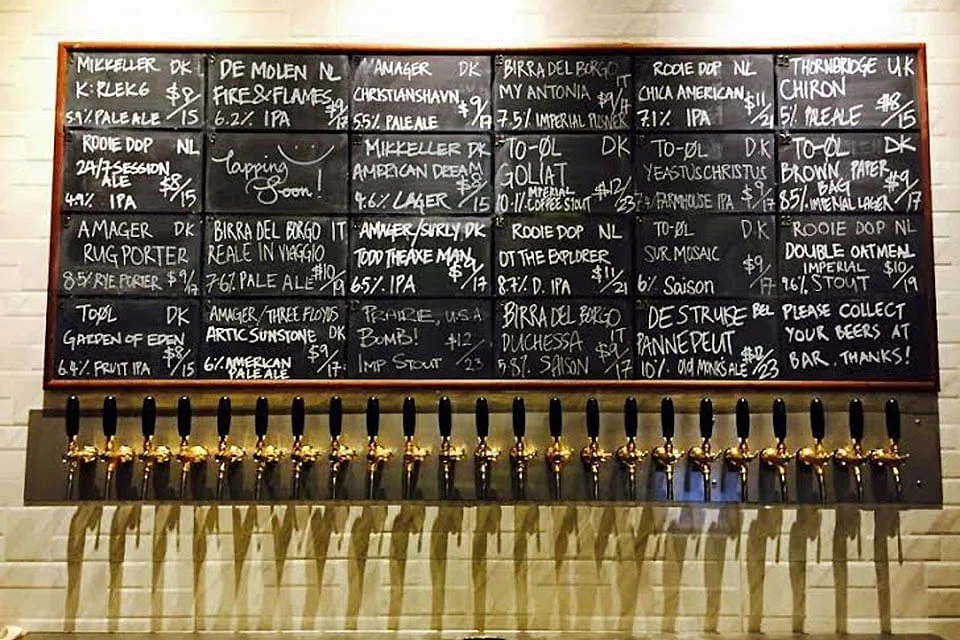 MIKKELLER DK
K:RLEK6 $8/15
5.9% PALE ALE
DE MOLEN NL
FIRE&FLAMES
6.2% IPA
AMAGER DK
CHRISTIANSHAVN $9/17
5.5% PALE ALE
BIRRA DEL BORGO IT
MY ANTONIA $9/17
7.5% IMPERIAL PILSNER
ROOIE DOP NL
CHICA AMERICAN $11/21
7.1% IPA
THORNBRIDGE UK
CHIRON $8/15
5% PALE ALE
ROOIE DOP NL
24/7 SESSION
ALE $8/15
4.9% IPA
Tapping
Soon!
MIKKELLER DK
AMERICAN DREAM
$8/15
4.6% LAGER
TO-ØL DK
GOLIAT
IMPERIAL $12/23
10.1% COFFEE STOUT
TO-ØL DK
YEASTUS CHRISTUS
$9/17
FARMHOUSE IPA
TO-ØL DK
BROWN PAPER
BAG $9/17
8.5% IMPERIAL LAGER
AMAGER DK
RUG PORTER
8.5% RYE PORTER $9/17
BIRRA DEL BORGO IT
REALE IN VIAGGIO
7.6% PALE ALE $10/19
AMAGER/SURLY DK
TODD THE AXE MAN
$9/17
6.5% IPA
ROOIE DOP NL
OT THE EXPLORER
$11/21
8.7% D. IPA
TO-ØL DK
SUR MOSAIC
$9/17
6% Saison
ROOIE DOP NL
DOUBLE OATMEAL
IMPERIAL $10/19
9.6% STOUT
TOØL DK
GARDEN OF EDEN
$8/15
6.4% FRUIT IPA
AMAGER/THREE FLOYDS
ARTIC SUNSTONE DK
$9/17
6% AMERICAN
PALE ALE
PRAIRIE, U.S.A
BOMB! $12/23
IMP STOUT
BIRRA DEL BORGO
DUCHESSA IT
$9/17
5.8% SAISON
DE STRUISE BEL
PANNEPEUT
10% Old MONK'S ALE $12/23
PLEASE COLLECT
YOUR BEERS AT
BAR. THANKS!